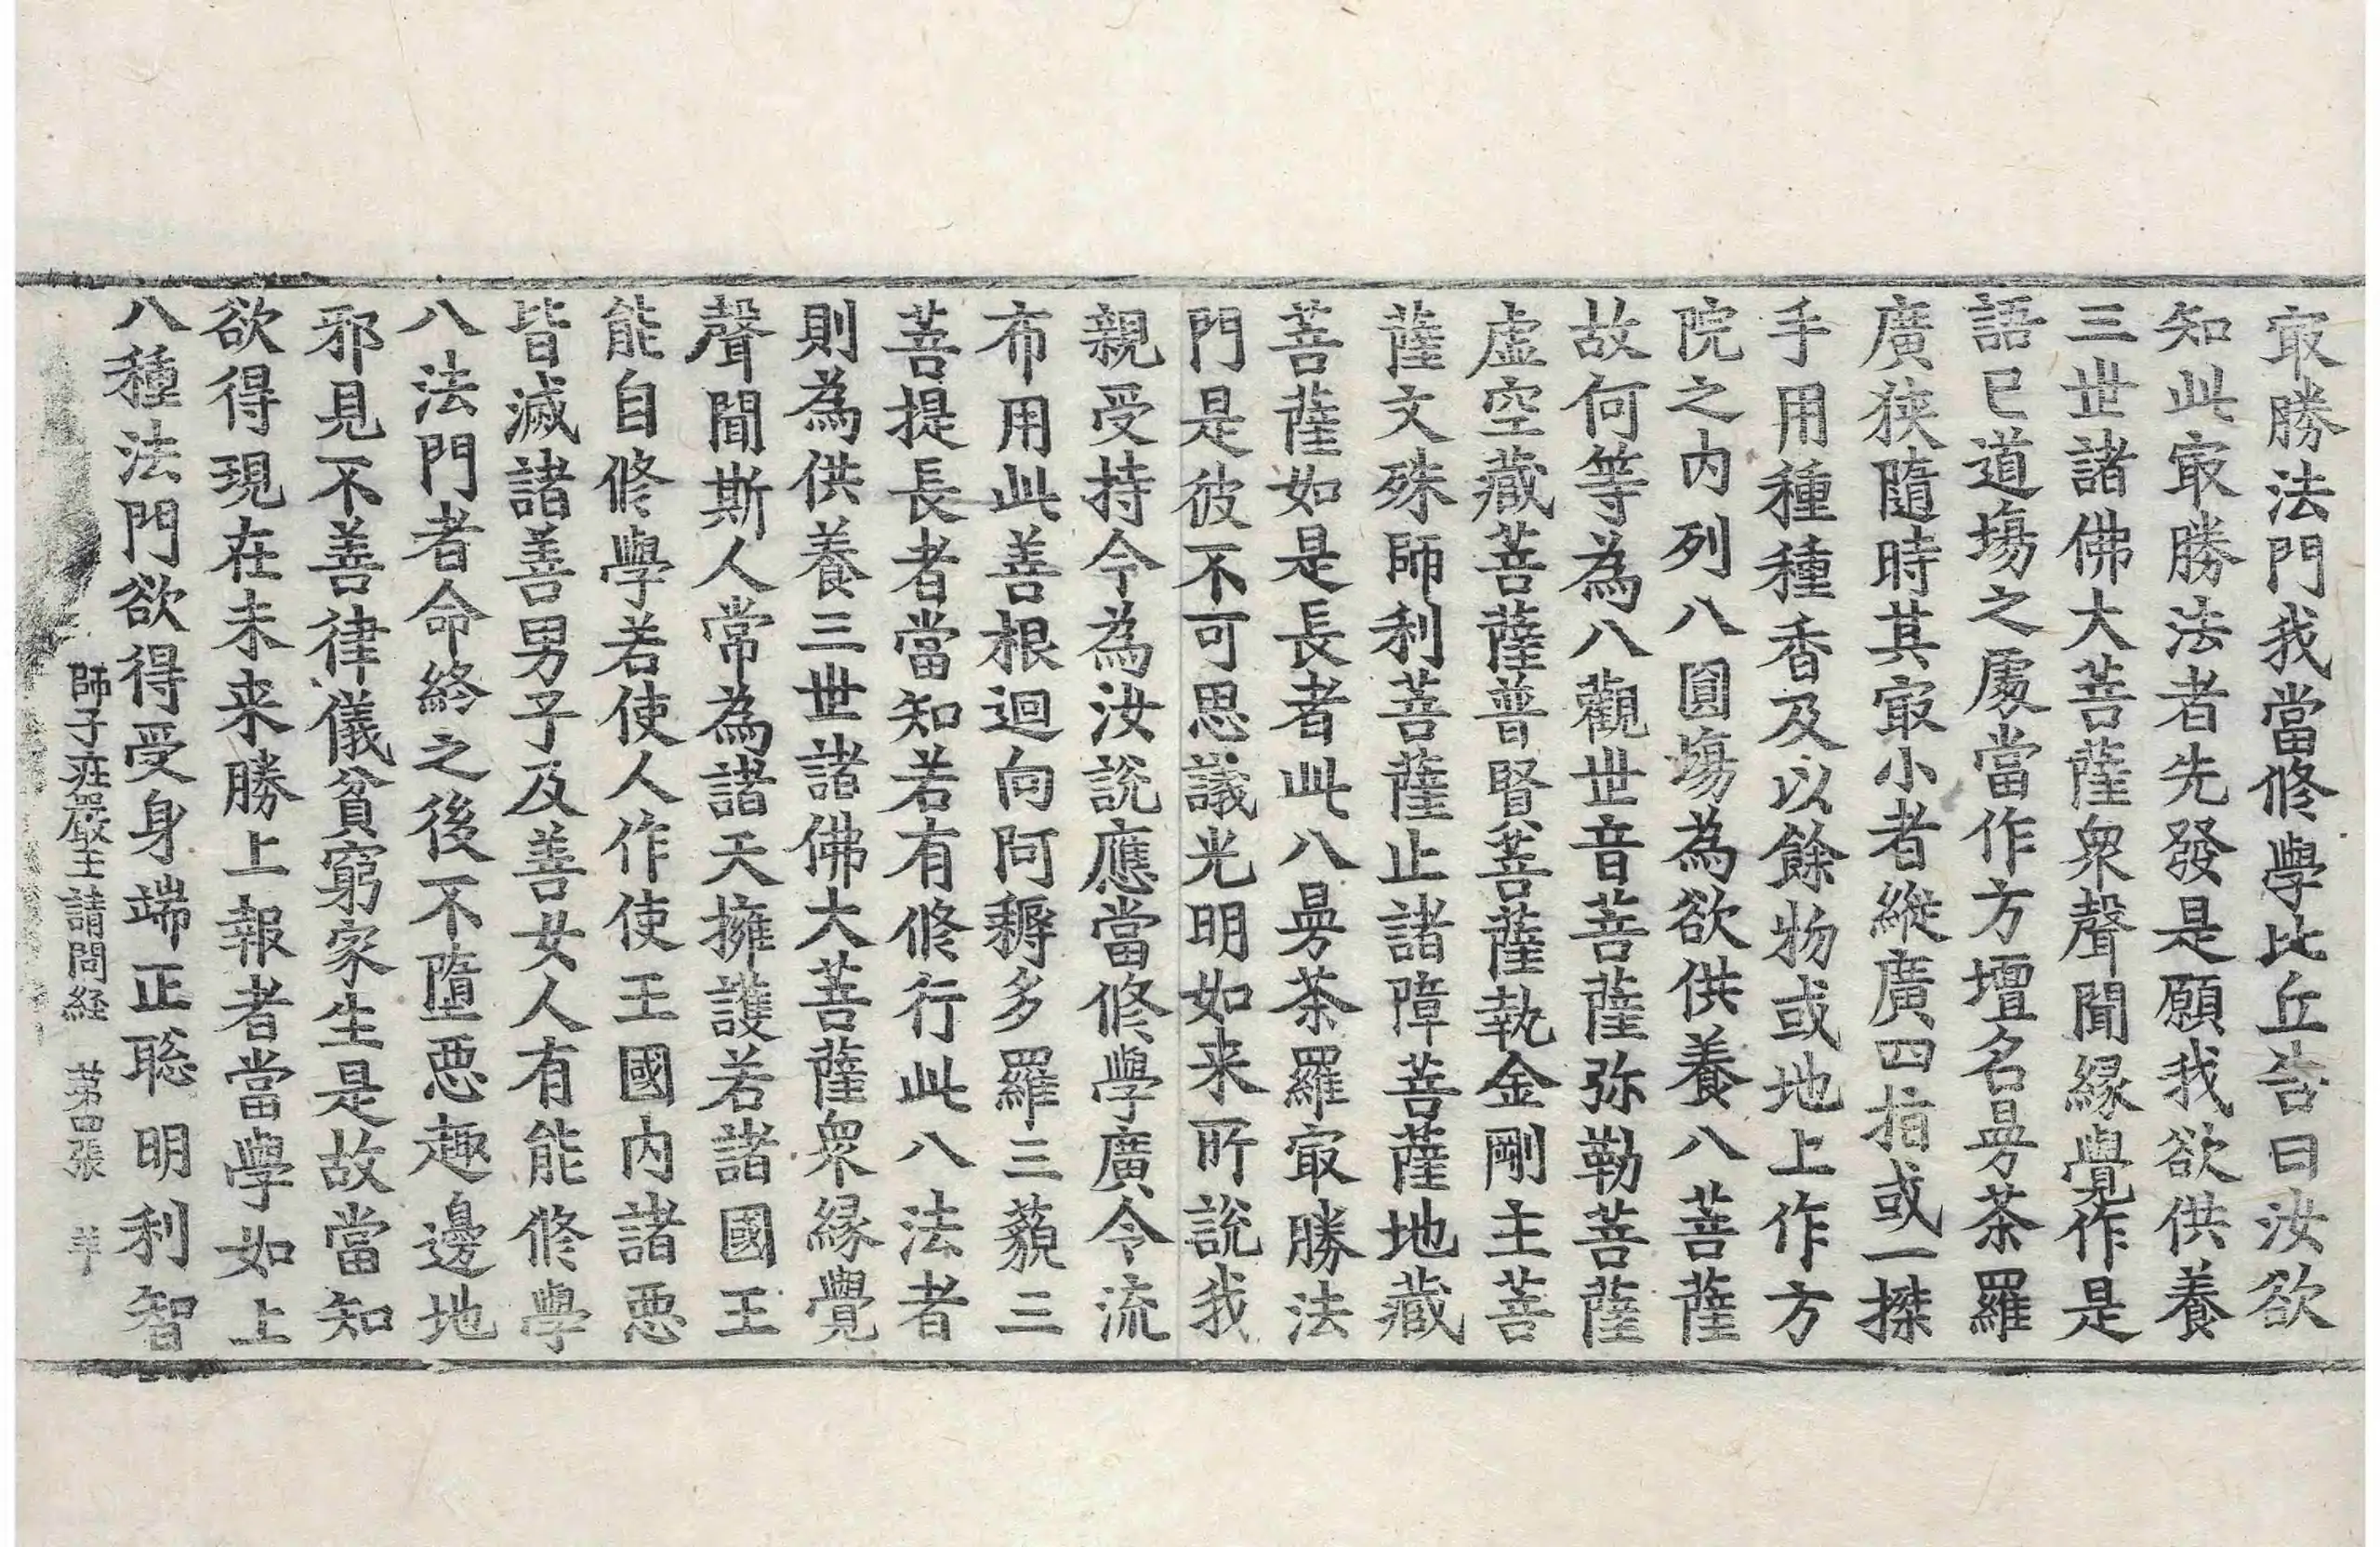 㝡勝法門我當修學比丘告曰汝欲
知此㝡勝法者先發是願我欲供養
三世諸佛大菩薩衆聲聞緣覺作是
語已道塲之處當作方壇名曼茶羅
廣狹隨時其㝡小者縱廣四指或一搩
手用種種香及以餘物或地上作方
院之内列八圓塲為欲供養八菩薩
故何等為八觀世音菩薩弥勒菩薩
虛空藏菩薩普賢菩薩執金剛主菩
薩文殊師利菩薩止諸障菩薩地藏
菩薩如是長者此八曼茶羅㝡勝法
門是彼不可思議光明如来所說我
親受持今為汝說應當修學廣令流
布用此善根迴向阿耨多羅三藐三
菩提長者當知若有修行此八法者
則為供養三世諸佛大菩薩衆緣覺
聲聞斯人常為諸天擁護若諸國王
能自修學若使人作使王國内諸惡
皆滅諸善男子及善女人有能修學
八法門者命終之後不墮惡趣邊地
邪見不善律儀貧窮家生是故當知
欲得現在未来勝上報者當學如上
八種法門欲得受身端正聡明利智
師子莊嚴王請問経 苐四張 羊